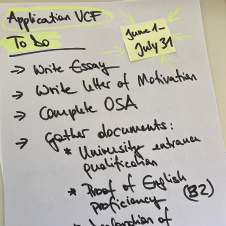 Application UCF
To Do
June 1 -
July 31
→ Write Essay
→ Write letter of Motivation
→ Complete OSA
→ Gather documents:
* University entrance
qualification
* Proof of English
proficiency (B2)
* Declaration of